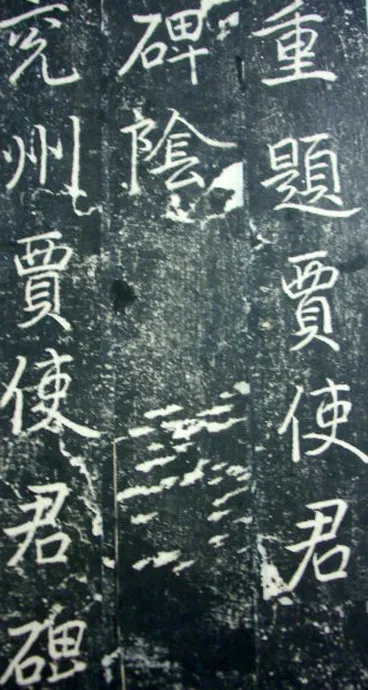 重題賈使君
碑陰
兖州賈使君碑